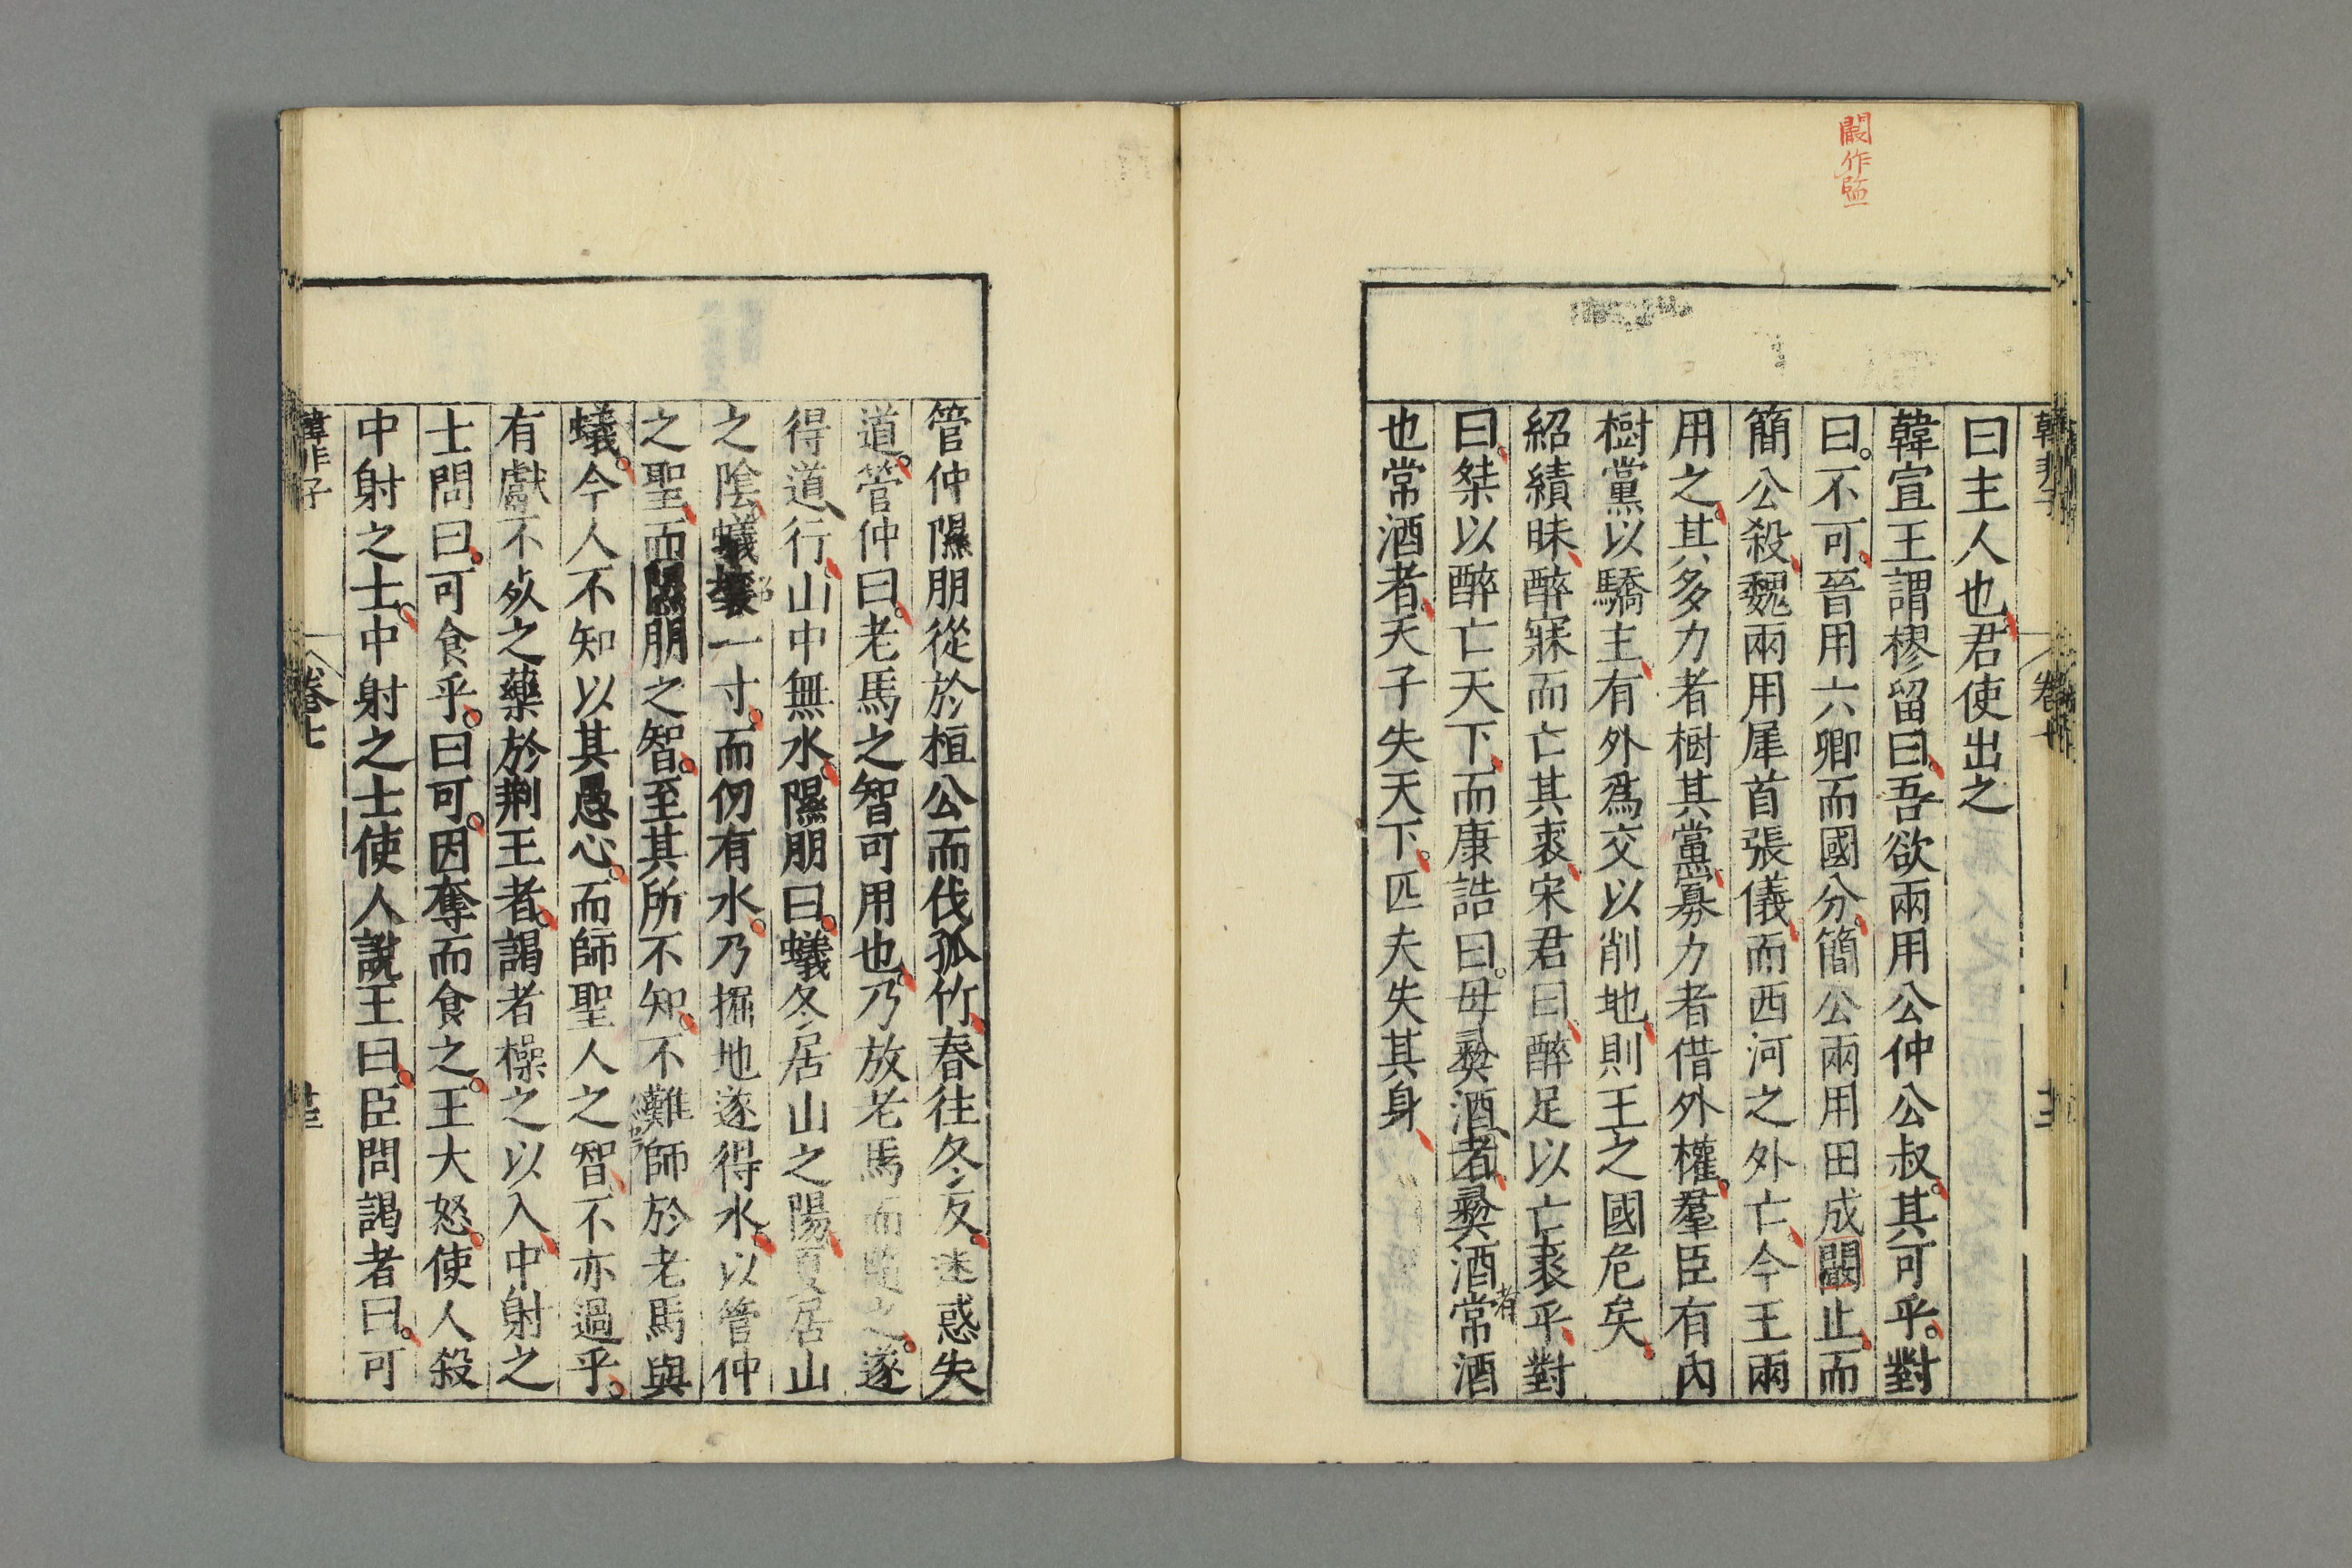 闞作監
韓非子 卷七
曰主人也君使出之
韓宣王謂樛留曰吾欲兩用公仲公叔其可乎對
曰不可晉用六卿而國分簡公兩用田成闞止而
簡公殺魏兩用犀首張儀而西河之外亡今王兩
用之其多力者樹其黨寡力者借外權羣臣有內
樹黨以驕主有外爲交以削地則王之國危矣
紹績昧醉寐而亡其裘宋君曰醉足以亡裘乎對
曰桀以醉亡天下而康誥曰毋彛酒者彛酒常酒
者
也常酒者天子失天下匹夫失其身
管仲隰朋從於桓公而伐孤竹春往冬反迷惑失
道管仲曰老馬之智可用也乃放老馬而隨之遂
得道行山中無水隰朋曰蟻冬居山之陽夏居山
之陰蟻壤一寸而仞有水乃掘地遂得水以管仲
之聖而隰朋之智至其所不知不難師於老馬與
蟻今人不知以其愚心而師聖人之智不亦過乎
有獻不死之藥於荆王者謁者操之以入中射之
士問曰可食乎曰可因奪而食之王大怒使人殺
中射之士中射之士使人說王曰臣問謁者曰可
韓非子 卷七